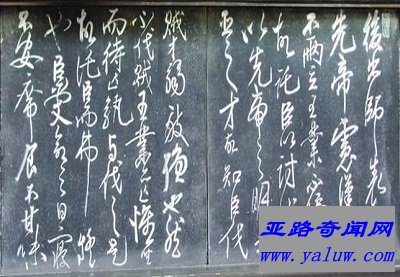 後出師表
先帝慮漢
不兩立王業不偏
故託臣以討
以先帝之明
臣之才故知臣伐
賊才弱敵強也然
不伐賊王業亦亡惟坐
而待亡孰與伐之是
故託臣而弗疑
也臣受命之日寢
不安席食不甘味
亚路奇闻网
www.yaluw.com